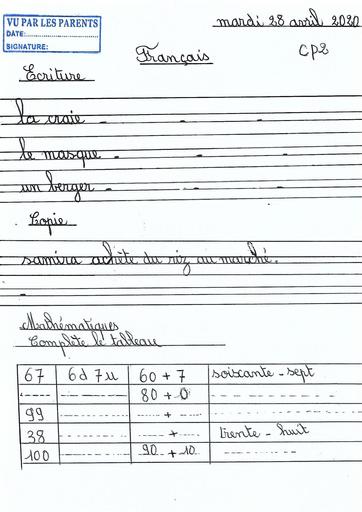 VU PAR LES PARENTS
DATE:
SIGNATURE:
mardi 28 avril 2020
Français
CP2
Ecriture
la craie - - -
le masque - - -
un berger - - -
Copie
samira achète du riz au marché.
-
Mathématiques
Complète le tableau
67 6d 7u 60+7 soixante-sept
80+0
99 +
38 + trente-huit
100 90+10